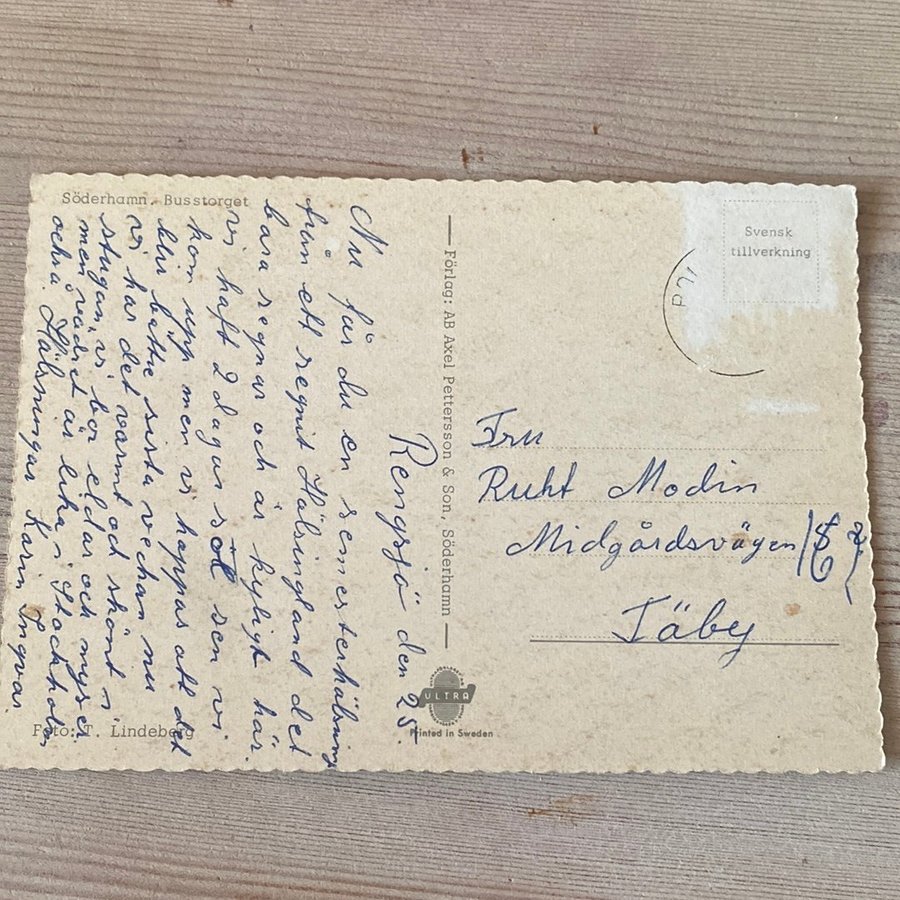 Söderhamn. Busstorget
Rengsjö den 25.
Nu får du en semesterhälsning
från ett regnit Hälsingland det
bara regnar och är kyligt här.
vi haft 2 dagar sol sen vi
kom upp men vi hoppas att det
blir bättre sista veckan nu
vi har det varmt och skönt i
stugan vi bor eldar och myser
men vädret är lika i Stockholm
också Hälsningar Karin Ingvar.
Foto: T. Lindeberg
Förlag: AB Axel Pettersson & Son, Söderhamn
ULTRA
Printed in Sweden
Svensk
tillverkning
Fru
Ruht Modin
Midgårdsvägen
Täby